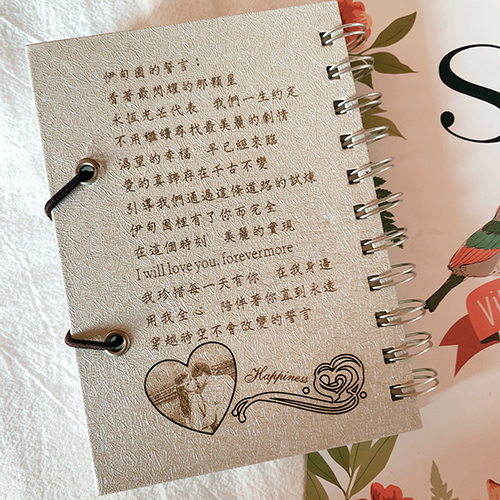 伊甸園的誓言：
看著最閃耀的那顆星
永恆光芒代表 我們一生約定
不用繼續尋找最美麗的劇情
渴望的幸福 早已經來臨
愛的真諦存在千古不變
引導我們通過這條道路的試煉
伊甸園裡有了你而完全
在這個時刻 美麗的實現
I will love you, forevermore
我珍惜每一天有你 在我身邊
用我全心 陪伴著你直到永遠
穿越時空不會改變的誓言
Happiness
S
Vi